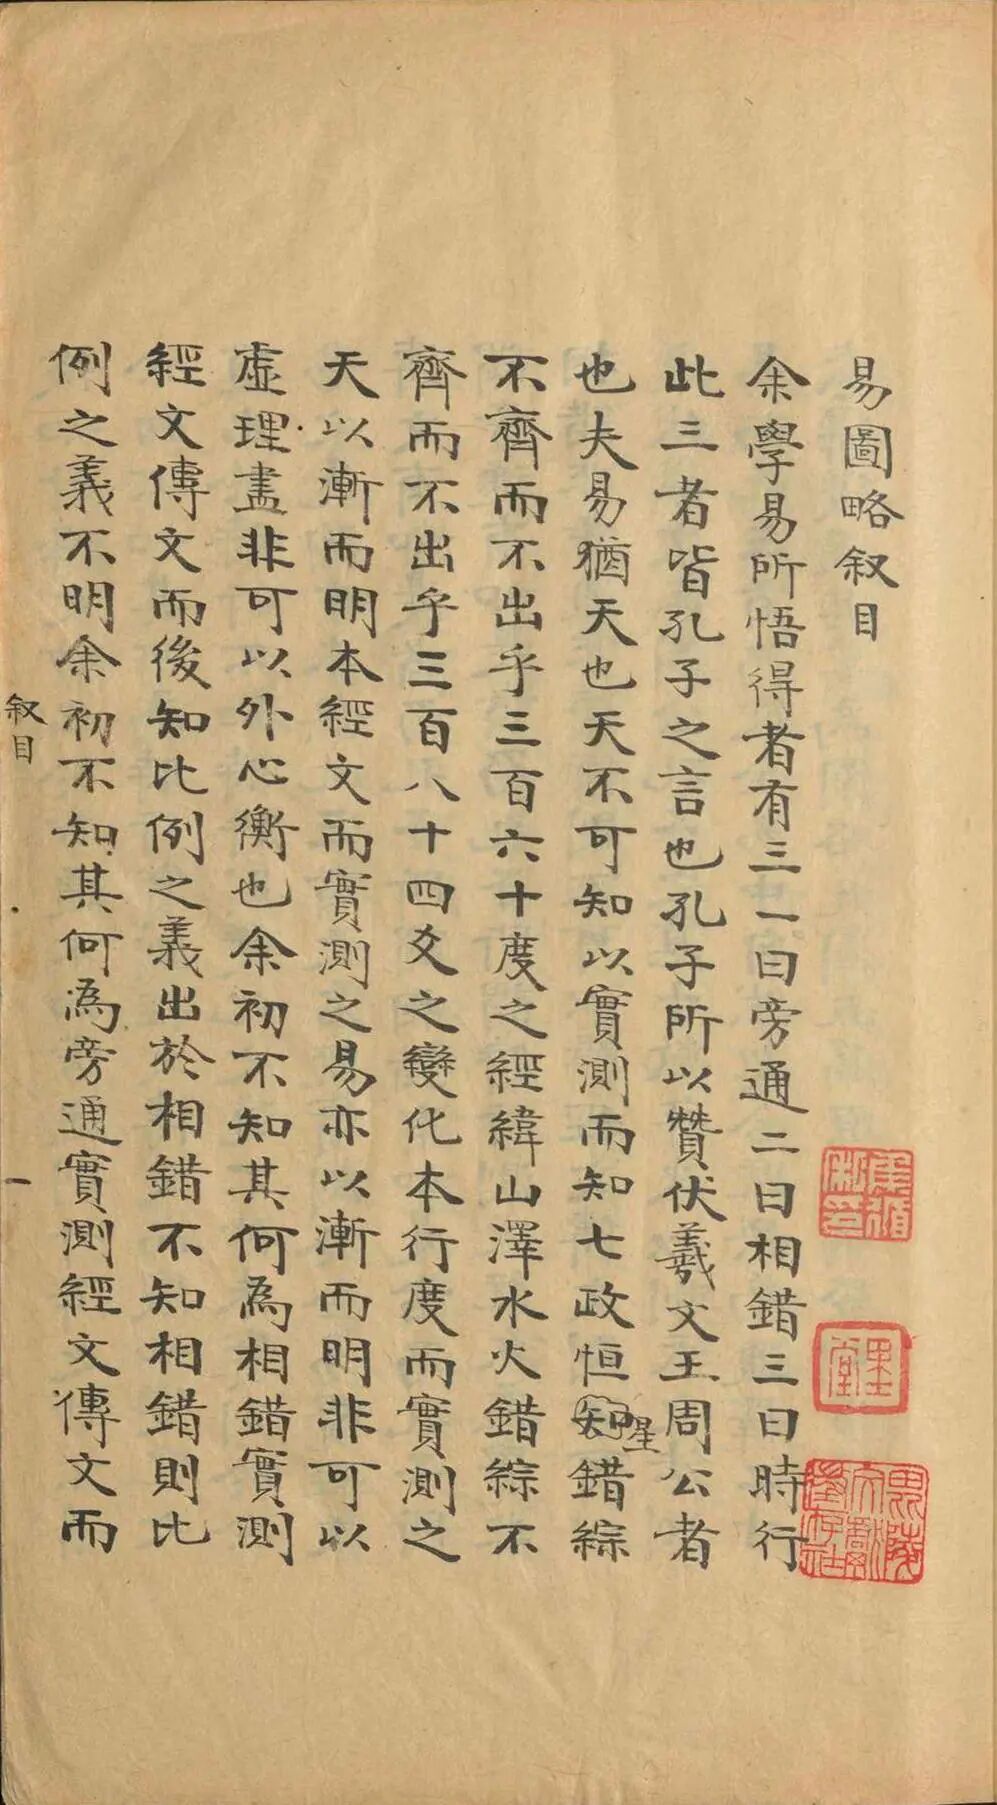 易圖略叙目
余學易所悟得者有三一曰旁通二曰相錯三曰時行
此三者皆孔子之言也孔子所以贊伏羲文王周公者
也夫易猶天也天不可知以實測而知七政恒知星錯綜
不齊而不出乎三百六十度之經緯山澤水火錯綜不
齊而不出乎三百八十四爻之變化本行度而實測之
天以漸而明本經文而實測之易亦以漸而明非可以
虛理盡非可以外心衡也余初不知其何為相錯實測
經文傳文而後知比例之義出於相錯不知相錯則比
例之義不明余初不知其何為旁通實測經文傳文而
叙目
一
焦循
私印
墨堂